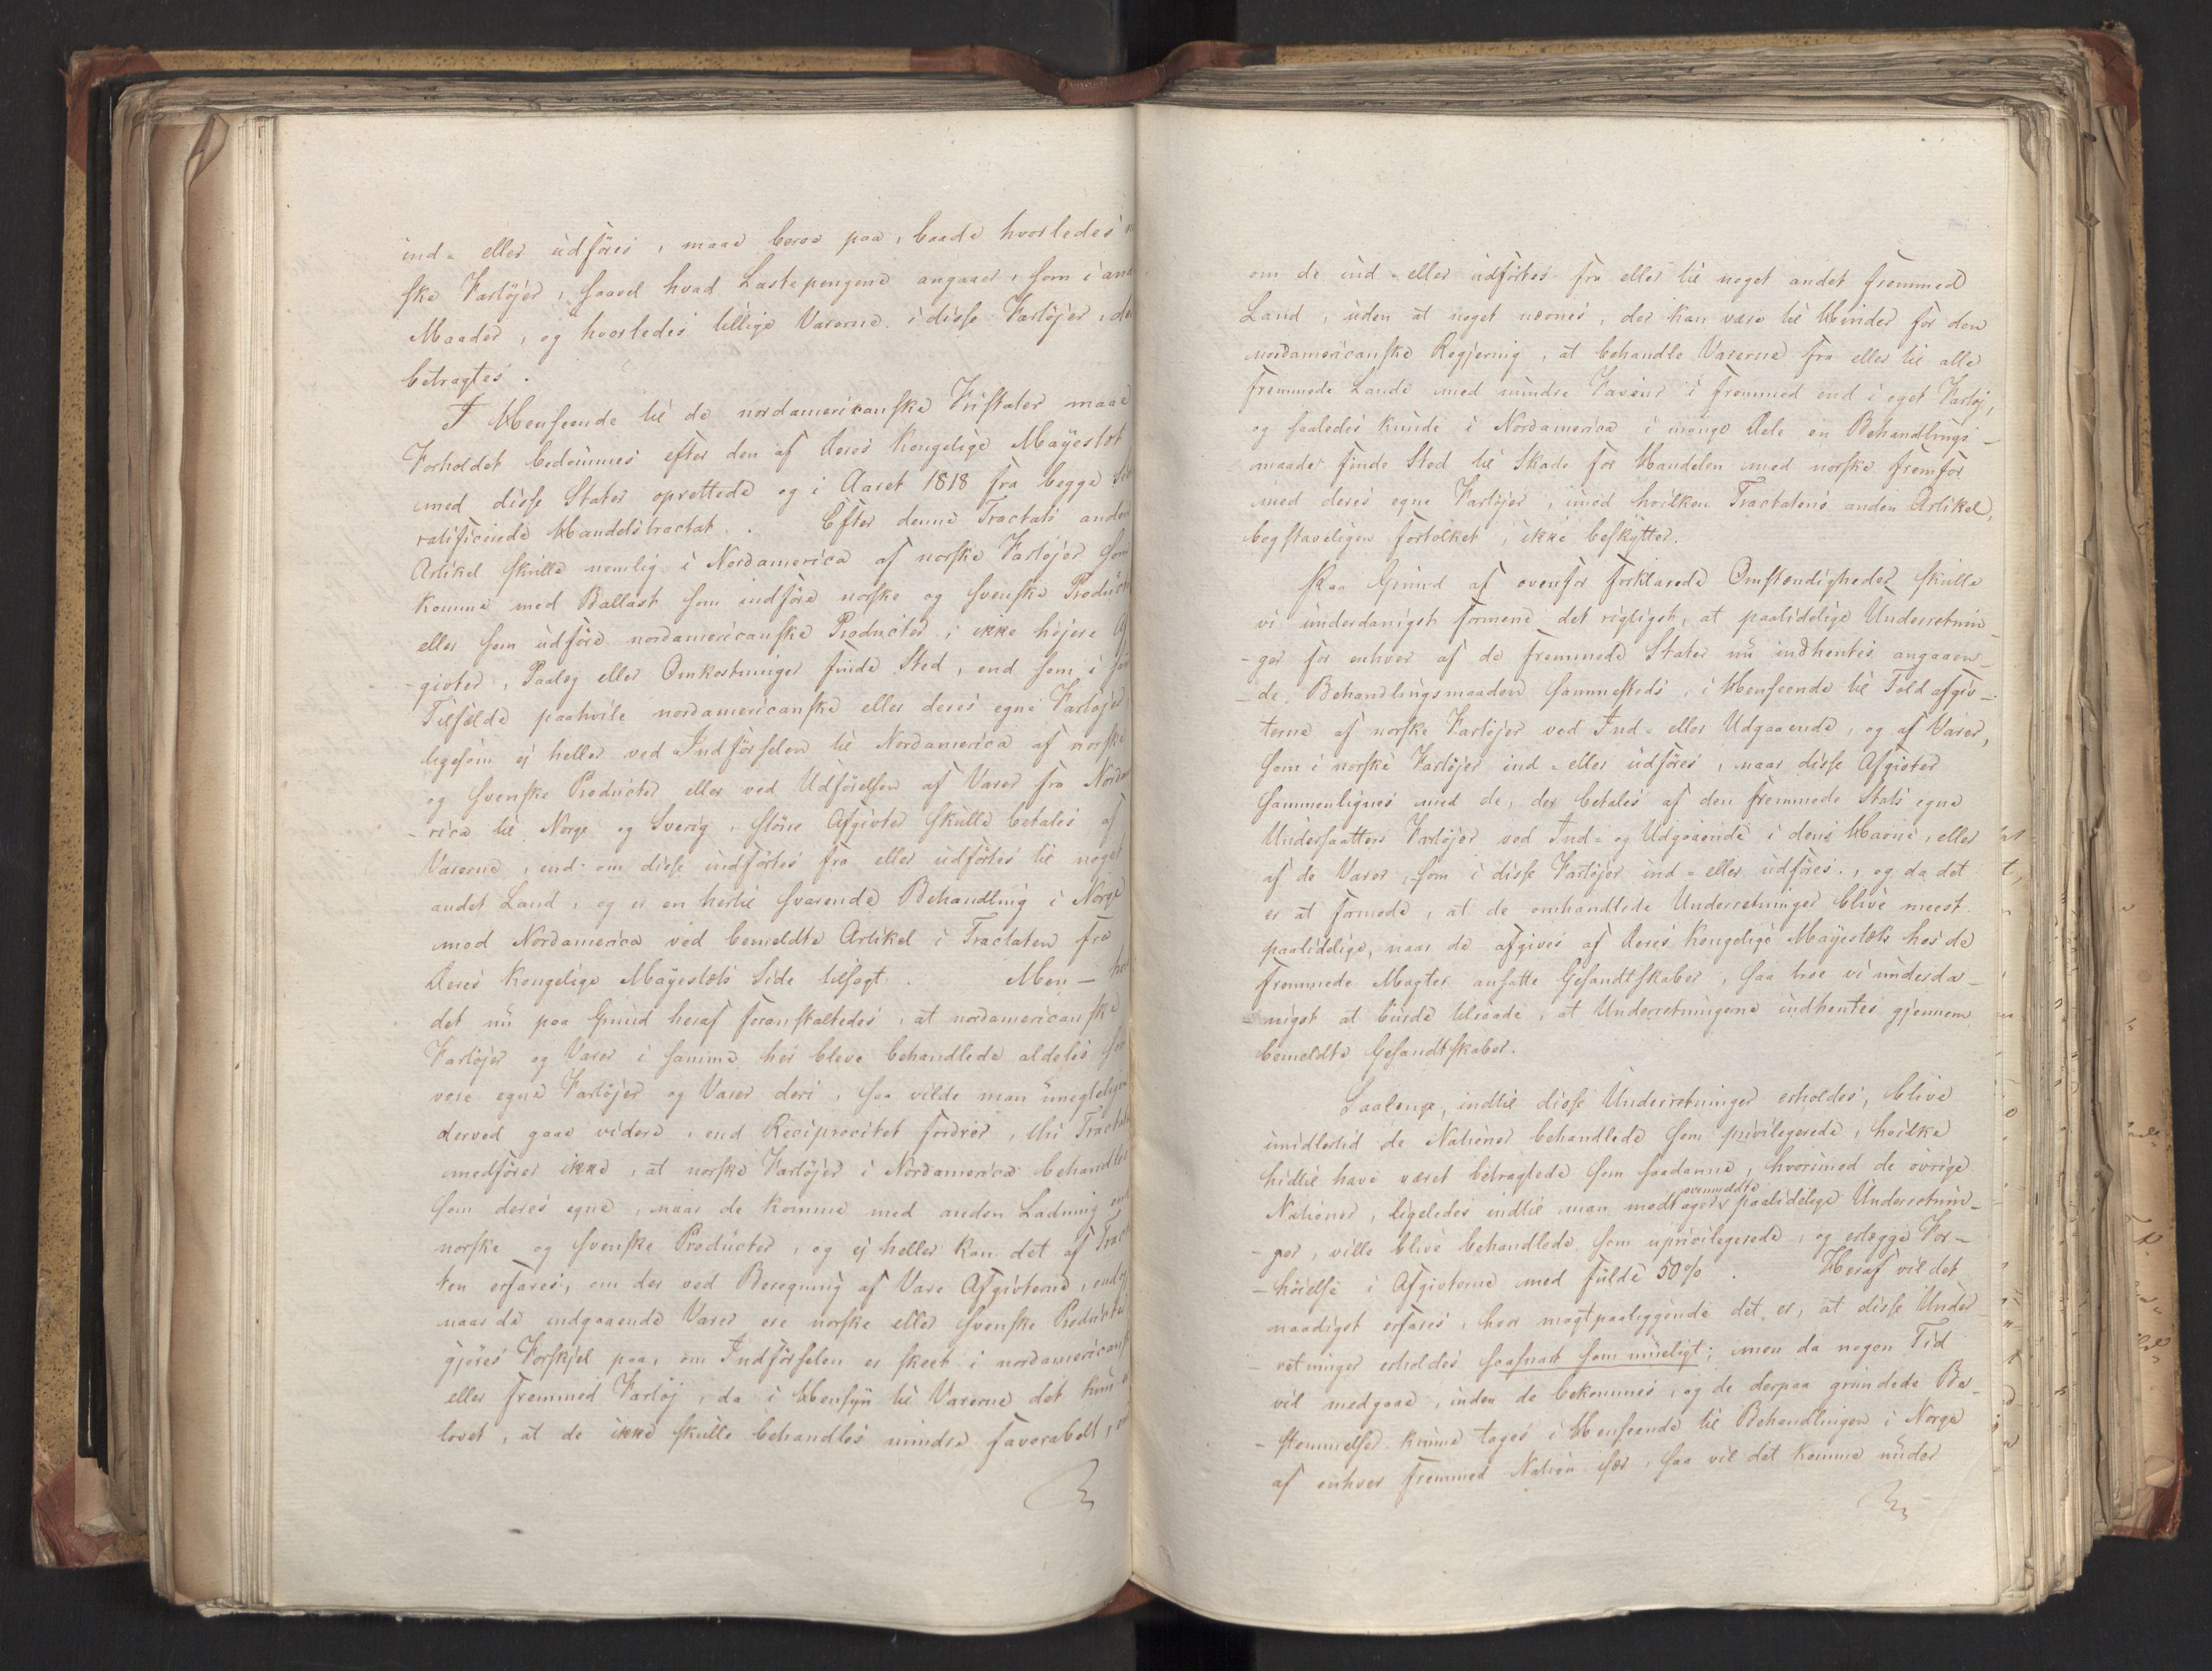 ind- eller udföres, maae beroe paa, baade hvorledes
ske Fartöjer, saavel hvad Lastepengene angaaer, som i and
Maader, og hvorledes tillige Varerne i disse Fartöjer, der
betragtes.
I Henseende til de nordamericanske Fristater maae
Forholdet bedömmes efter den af Deres Kongelige Mayestæt
med disse Stater oprettede og i Aaret 1818 fra begge Si
ratificerede Handelstractat. Efter denne Tractats anden
Artikel skulle nemlig i Nordamerica af norske Fartöjer som
komme med Ballast som indföre norske og svenske Product
eller som udföre nordamericanske Producter, ikke höjere Af
-givter, Paalæg eller Omkostninger finde Sted, end som i
Tilfælde paahvile nordamericanske eller deres egne Fartöjer
ligesom ej heller ved Indförselen til Nordamerica af norske
og svenske Producter eller ved Udförelsen af Varer fra Norda
-rica til Norge og Sverig, större Afgivter skulle betales af
Varerne, end om disse indförtes fra eller udförtes til noget
andet Land, og er en hertil svarende Behandling i Norge
mod Nordamerica ved bemeldte Artikel i Tractaten fra
Deres Kongelige Mayestæts Side tilsagt. Men -
det nu paa Grund heraf foranstaltedes, at nordamericanske
Fartöjer og Varer i samme her bleve behandlede aldeles som
vore egne Fartöjer og Varer deri, saa vilde man unegteligen
derved gaae videre, end Reciprocitet fordrer, thi Tractaten
medförer ikke, at norske Fartöjer i Nordamerica behandles
som deres egne, naar de komme med anden Ladning end
norske og svenske Producter, og ej heller kan det af Trac
ten erfares, om der ved Beregning af Vare Afgivterne, endog
naar de indgaaende Varer ere norske eller svenske Producter
gjöres Forskjel paa, om Indförselen er skeet i nordamericansk
eller fremmed Fartöj, da i Hensyn til Varerne det kun
lovet, at de ikke skulle behandles mindre favorabelt, end
om de ind- eller udförtes fra eller til noget andet fremmed
Land, uden at noget nævnes, der kan være til Hinder for den
nordamericanske Regjering, at behandle Varerne fra eller til alle
fremmede Lande med mindre Faveur i fremmed end i eget Fartöj,
og saaledes kunde i Nordamerica i mange Dele en Behandlings-
maade finde Sted til Skade for Handelen med norske fremfor
med deres egne Fartöjer, imod hvilken Tractatens anden Artikel,
bogstaveligen fortolket, ikke beskytter.
Paa Grund af ovenfor forklarede Omstændigheder skulle
vi underdanigst formene det rigtigst, at paalidelige Underretnin-
-ger for enhver af de fremmede Stater nu indhentes angaaen-
-de Behandlingsmaaden sammesteds, i Henseende til Toldafgiv-
terne af norske Fartöjer ved Ind- eller Udgaaende, og af Varer,
som i norske Fartöjer ind- eller udföres, naar disse Afgivter
sammenlignes med de, der betales af den fremmede Stats egne
Undersaatters Fartöjer ved Ind- og Udgaaende i dens Havne, eller
af de Varer, som i disse Fartöjer ind- eller udföres, og da det
er at formode, at de omhandlede Underretninger blive meest
paalidelige, naar de afgives af Deres Kongelige Mayestæts hos de
fremmede Magter ansatte Gesandtskaber, saa troe vi underda-
-nigst at burde tilraade, at Underretningerne indhentes gjennem
bemeldte Gesandtskaber.
Saalenge, indtil disse Underretninger erholdes, blive
imidlertid de Nationer behandlede som privilegerede, hvilke
hidtil have været betragtede som saadanne, hvorimod de övrige
Nationer, ligeledes indtil man modtager ovenmeldte paalidelige Underretnin-
-ger, ville blive behandlede som uprivilegerede, og erlægge For-
-höielse i Afgivterne med fulde 50%. Heraf vil det
naadigst erfares, hvor magtpaaliggende det er, at disse Under-
-retninger erholdes saasnart som mueligt; men da nogen Tid
vil medgaae, inden de bekommes, og de derpaa grundede Be-
-stemmelser kunne tages i Henseende til Behandlingen i Norge
af enhver fremmed Nation især, saa vil det komme under